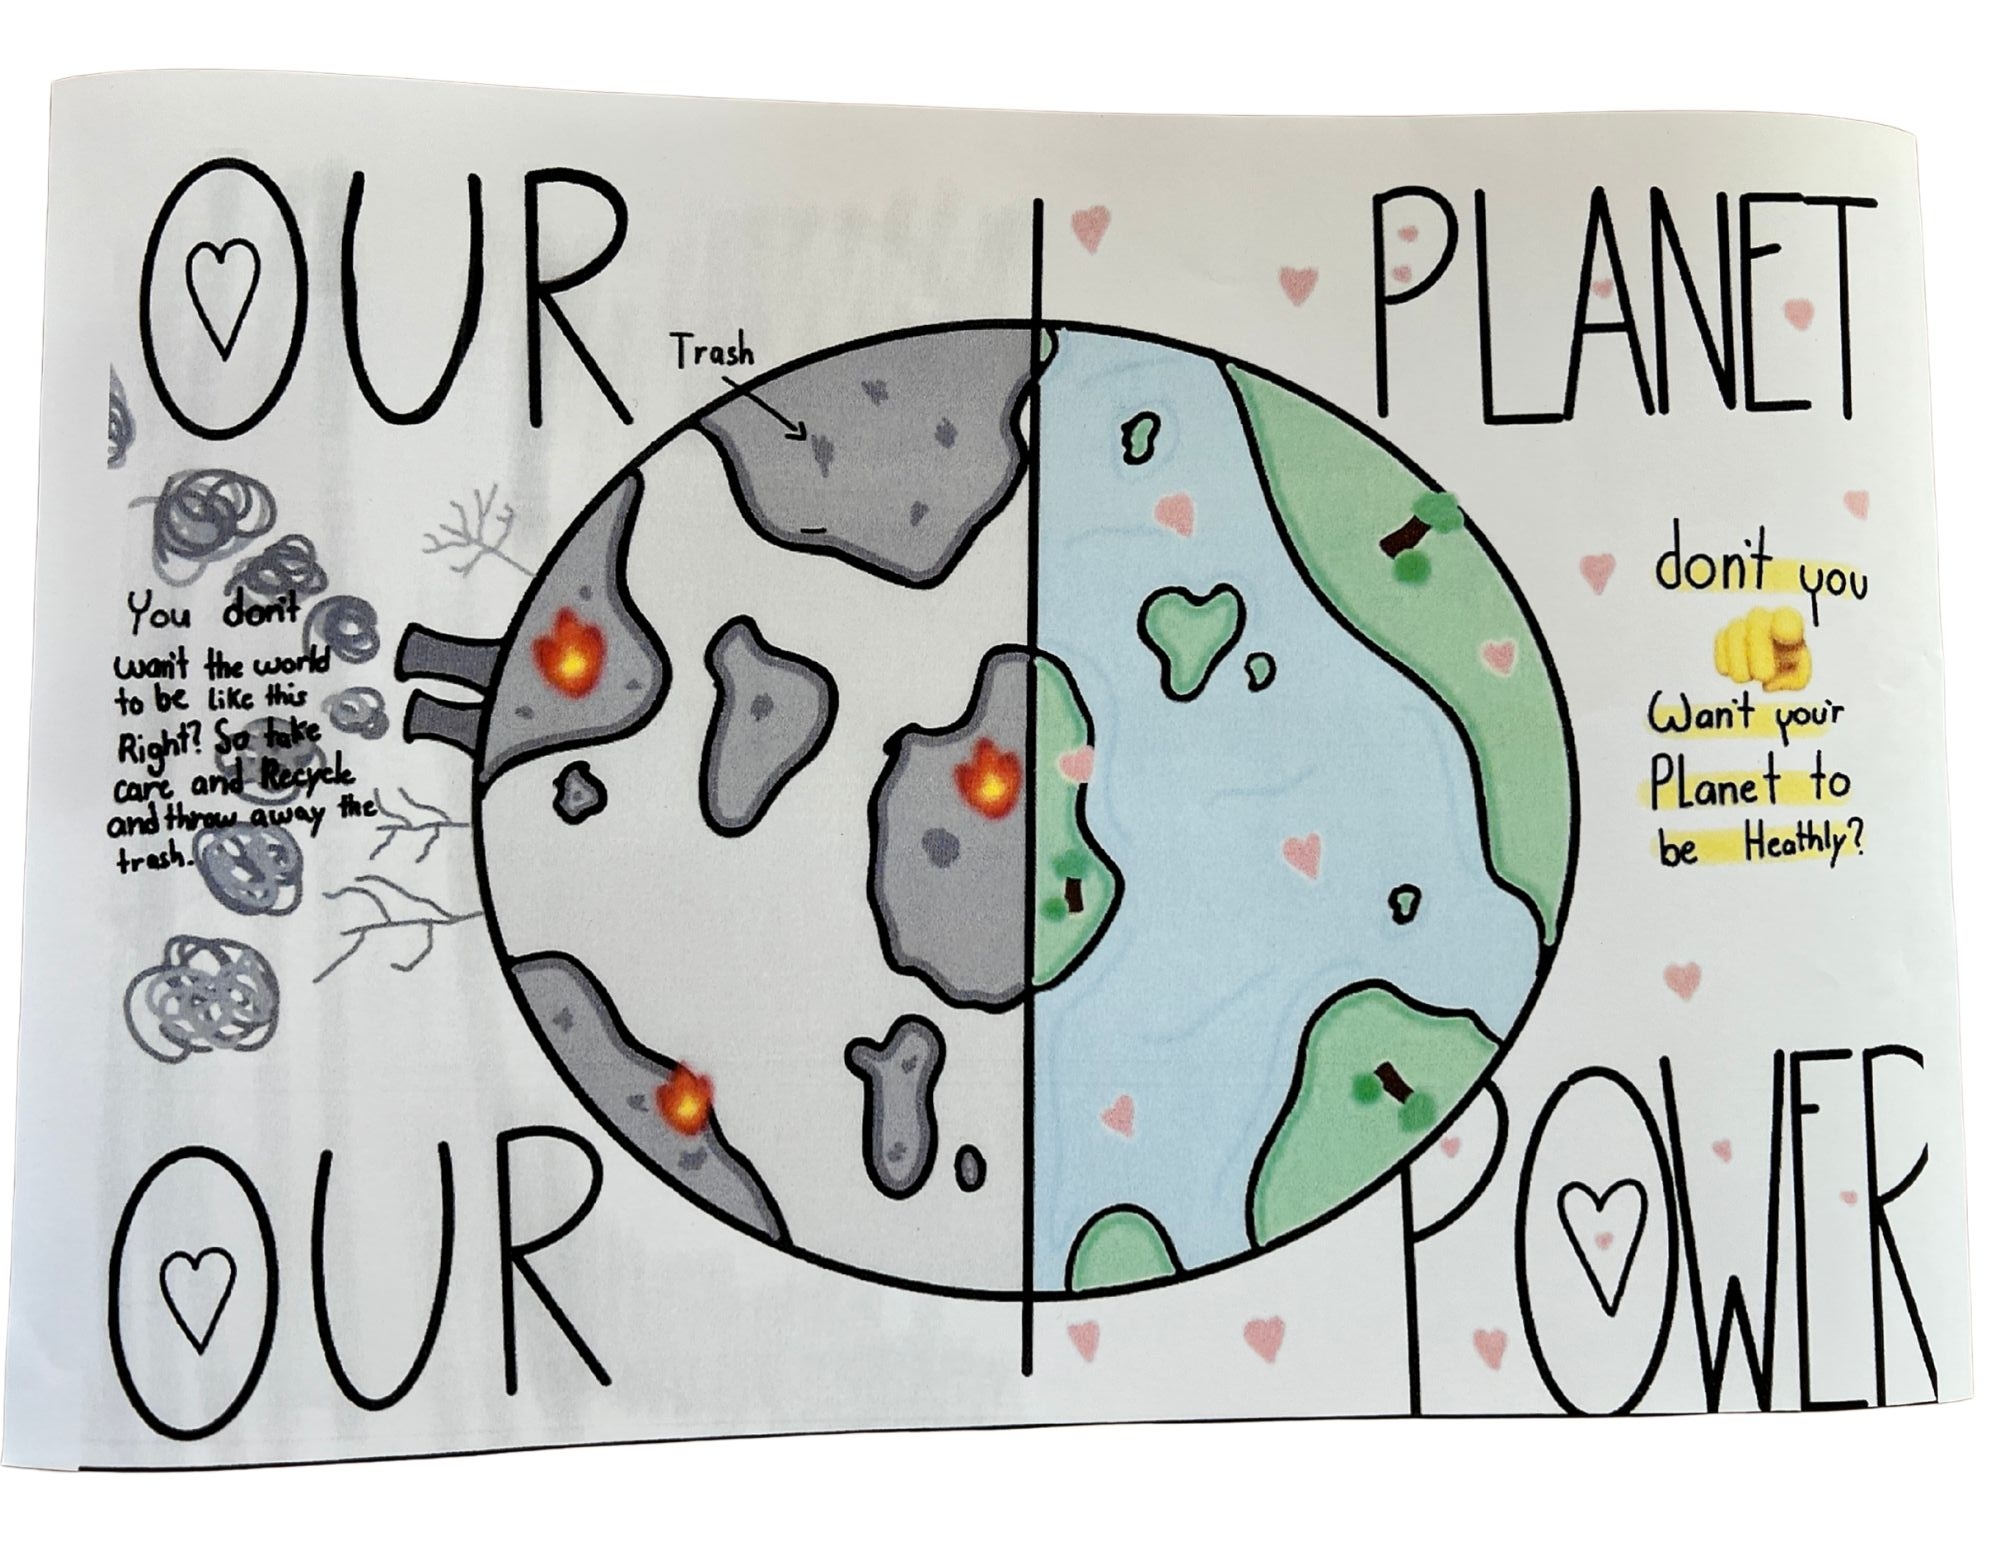 OUR PLANET
Trash
You don't
wan't the world
to be like this
Right? So take
care and Recycle
and throw away the
trash.
don't you
Wan't you'r
Planet to
be Heathly?
OUR POWER